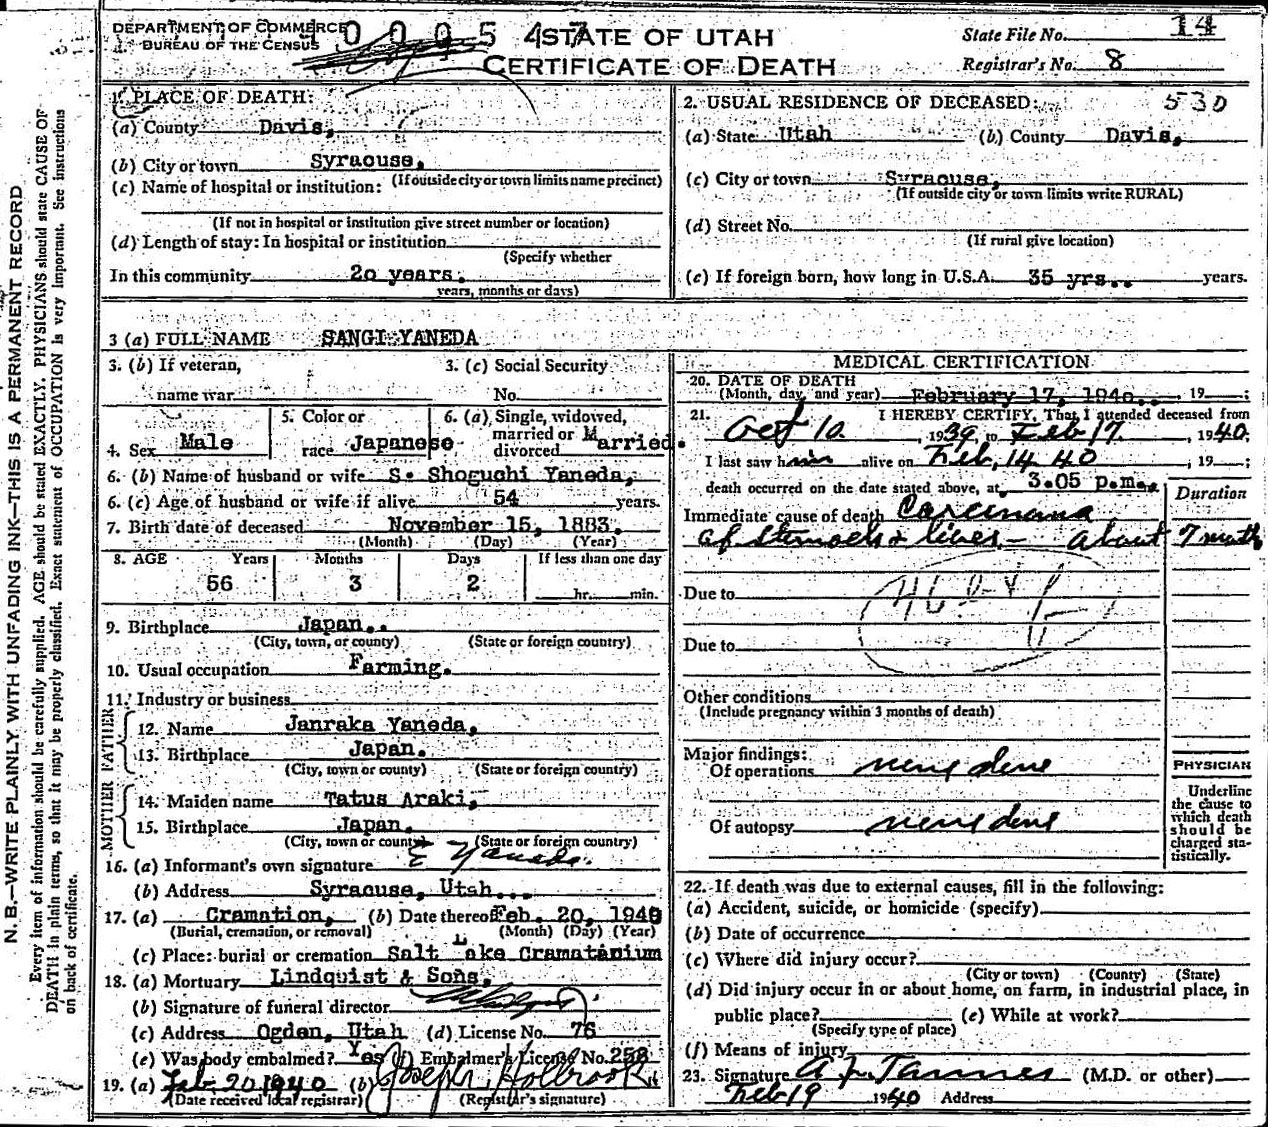 DEPARTMENT OF COMMERCE
BUREAU OF THE CENSUS
0 0 0 5 47
STATE OF UTAH
CERTIFICATE OF DEATH
State File No. 14
Registrar's No. 8
1. PLACE OF DEATH:
(a) County Davis,
(b) City or town Syracuse,
(If outside city or town limits name precinct)
(c) Name of hospital or institution:
(If not in hospital or institution give street number or location)
(d) Length of stay: In hospital or institution
(Specify whether
In this community 20 years.
years, months or days)
2. USUAL RESIDENCE OF DECEASED: 530
(a) State Utah (b) County Davis,
(c) City or town Syracuse,
(If outside city or town limits write RURAL)
(d) Street No.
(If rural give location)
(e) If foreign born, how long in U.S.A. 35 yrs.. years.
3 (a) FULL NAME SANGI YANEDA
3. (b) If veteran,
name war
3. (c) Social Security
No.
4. Sex Male
5. Color or
race Japanese
6. (a) Single, widowed,
married or
divorced Married.
6. (b) Name of husband or wife S. Shoguchi Yaneda,
6. (c) Age of husband or wife if alive 54 years.
7. Birth date of deceased November 15, 1883.
(Month) (Day) (Year)
8. AGE Years Months Days If less than one day
56 3 2 hr. min.
9. Birthplace Japan..
(City, town, or county) (State or foreign country)
10. Usual occupation Farming.
11. Industry or business
FATHER
12. Name Janraka Yaneda,
13. Birthplace Japan.
(City, town or county) (State or foreign country)
MOTHER
14. Maiden name Tatus Araki,
15. Birthplace Japan.
(City, town or county) (State or foreign country)
16. (a) Informant's own signature E Yaneda.
(b) Address Syracuse, Utah...
17. (a) Cramation, (b) Date thereof Feb. 20, 1940
(Burial, cremation, or removal) (Month) (Day) (Year)
(c) Place: burial or cremation Salt Lake Cramatanium
18. (a) Mortuary Lindquist & Sons.
(b) Signature of funeral director
(c) Address Ogden, Utah (d) License No. 76
(e) Was body embalmed? Yes (f) Embalmer's License No. 258
19. (a) Feb 20 1940 (b) Joseph Holbrook
(Date received local registrar) (Registrar's signature)
MEDICAL CERTIFICATION
20. DATE OF DEATH
(Month, day, and year) February 17, 1940.. , 19 ;
21. I HEREBY CERTIFY, That I attended deceased from
Oct 10. , 1939, to Feb 17. , 1940;
I last saw him alive on Feb, 14 40 , 19 ;
death occurred on the date stated above, at 3.05 p.m.
Duration
Immediate cause of death Carcinoma
of stomach & liver - about 7 months
Due to
Due to
Other conditions
(Include pregnancy within 3 months of death)
Major findings:
Of operations none done
Of autopsy none done
PHYSICIAN
Underline
the cause to
which death
should be
charged sta-
tistically.
22. If death was due to external causes, fill in the following:
(a) Accident, suicide, or homicide (specify)
(b) Date of occurrence
(c) Where did injury occur?
(City or town) (County) (State)
(d) Did injury occur in or about home, on farm, in industrial place, in
public place? (e) While at work?
(Specify type of place)
(f) Means of injury
23. Signature A J Tanner (M.D. or other)
Feb 19 1940 Address
N. B.—WRITE PLAINLY WITH UNFADING INK—THIS IS A PERMANENT RECORD
Every item of information should be carefully supplied. AGE should be stated EXACTLY. PHYSICIANS should state CAUSE OF
DEATH in plain terms, so that it may be properly classified. Exact statement of OCCUPATION is very important. See instructions
on back of certificate.